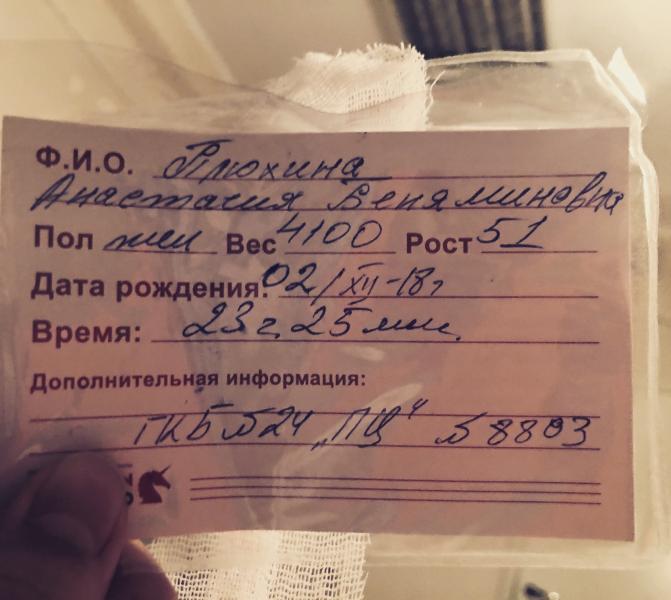 Ф.И.О. Плюхина
Анастасия Вениаминовна
Пол жен Вес 4100 Рост 51
Дата рождения: 02/XII-18г
Время: 23 г. 25 мин.
Дополнительная информация:
ГКБ №24 „ПЦ“ № 8803